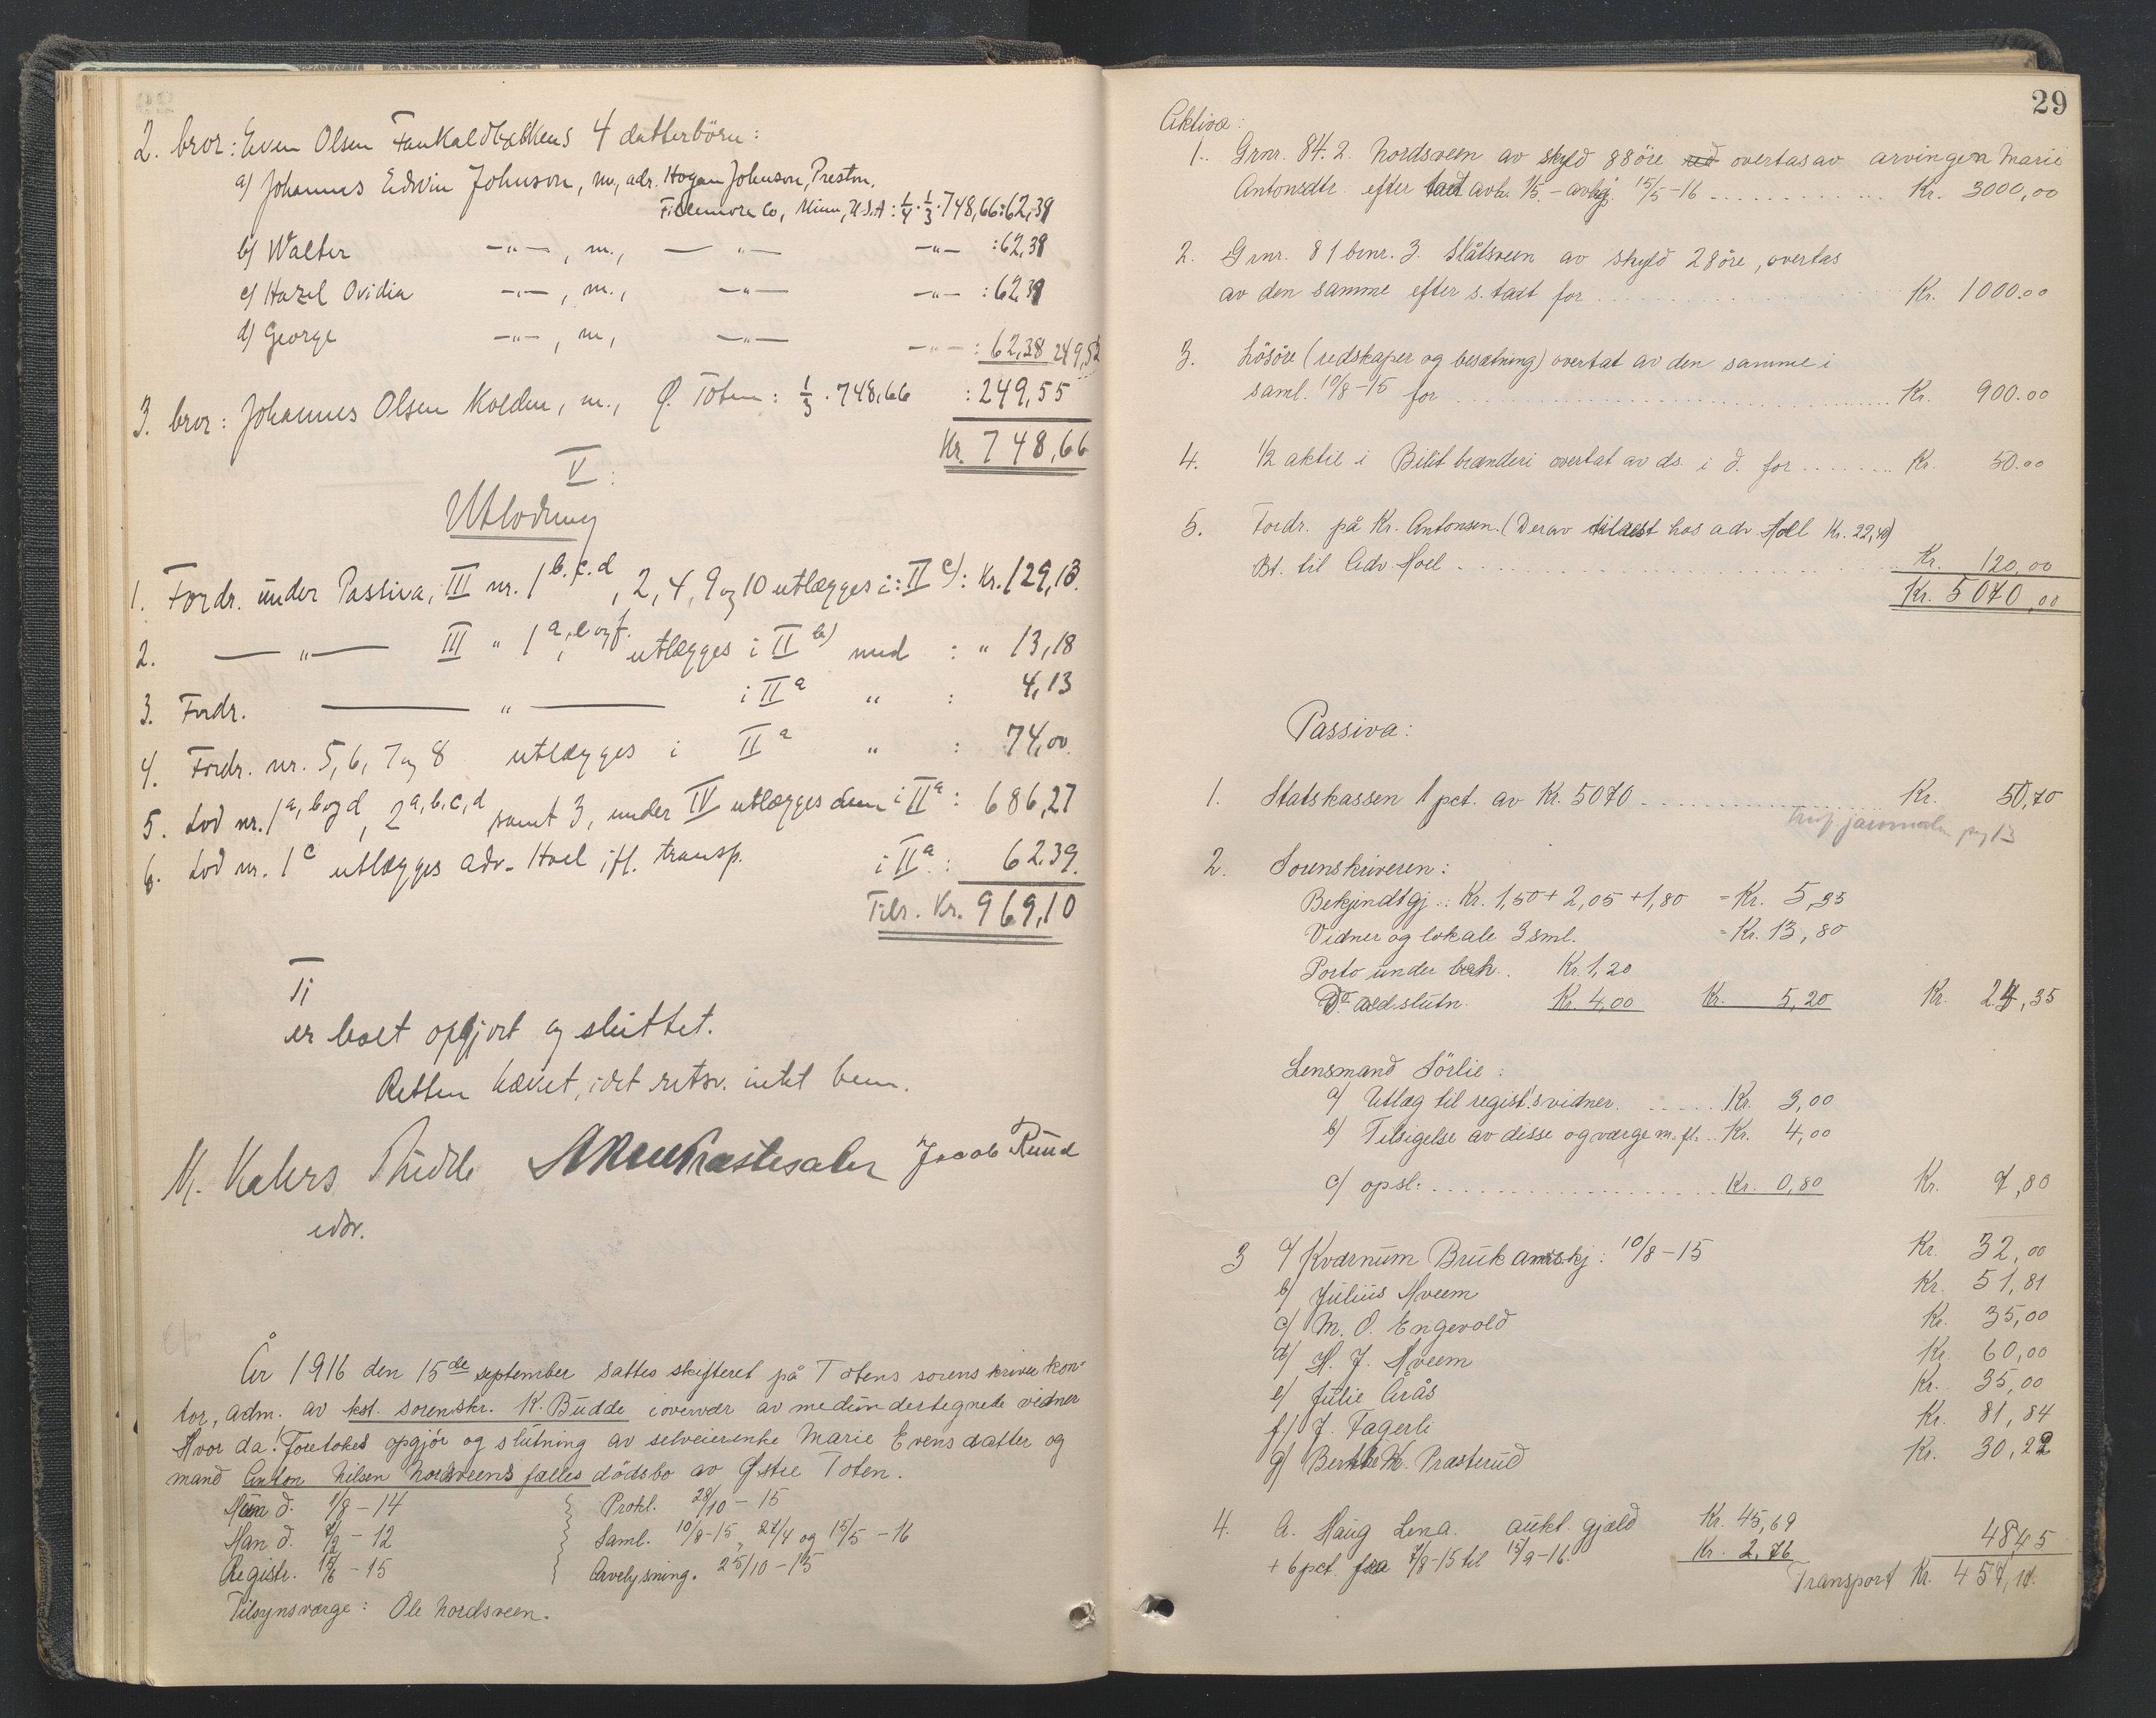 2. bror: Even Olsen Fankaldbakkens 4 datterbörn:
a) Johannes Edwin Johnson, m., adr. Hogan Johnson, Preston,
Fillemore Co, Minn, U.S.A: 1/4 · 1/3 · 748,66: 62,39
b) Walter —"—, m., —"— —"— : 62,39
c) Hazel Ovidia —"—, m., —"— —"— : 62,39
d) George —"—, m., —"— —"— : 62,38 249,55
3. bror: Johannes Olsen Kolden, m., Ø. Toten: 1/3 · 748,66 : 249,55
Kr. 748,66
V:
Utlodning
1. Fordr. under Passiva, III nr. 1 b.c.d, 2, 4, 9 og 10 utlægges i: II c): Kr. 129,13.
2. —"— III " 1 a, e og f. utlægges i II b) med : " 13,18
3. Fordr. —"— i II a " : 4,13
4. Fordr. nr. 5, 6, 7 og 8 utlægges i II a " : 74,00.
5. Lod nr. 1 a, b og d, 2 a, b, c, d samt 3, under IV utlægges dem i II a : 686,27
6. Lod nr. 1 c utlægges adv. Hoel ifl. transp. i II a : 62,39.
Tils. Kr. 969,10
Ti
er boet opgjort og sluttet.
Retten hævet, idet retsv. intet bem.
Budde Præstesæter Jacob Ruud
edsv.
År 1916 den 15de september sattes skifteret på Totens sorenskriverkon-
tor, adm. av kst. sorenskr. K. Budde i overvær av medundertegnede vidner
Hvor da! Foretokes opgjör og slutning av selveierenke Marie Evensdatter og
mand Anton Nilsen Nordsveens fælles dödsbo av Østre Toten.
Hun d. 1/8 – 14 Prokl. 28/10 – 15
Man d. 7/2 – 12 Saml. 10/8-15, 27/4 og 15/5 – 16
Registr. 15/6 – 15 Arvelysning. 25/10 – 15
Tilsynsværge: Ole Nordsveen.
29
Aktiva:
1. Grnr. 84. 2. Nordsveen av skyld 88 öre overtas av arvingen Marie
Antonsdtr. efter takst avh. 1/5. – avhj. 15/5 – 16 Kr. 3000,00
2. Grnr. 81 bnr. 3. Slåtsveen av skyld 28 öre, overtas
av den samme efter s. takst for Kr. 1000.00
3. Lösöre (redskaper og besætning) overtat av den samme i
saml. 10/8 – 15 for Kr. 900.00
4. 1/2 aktie i Bilit brænderi overtat av ds. i d. for Kr. 50.00
5. Fordr. på Kr. Antonsen. (Derav tilrest hos adv Hoel Kr. 22,40)
Bt. til Adv Hoel Kr. 120,00
Kr. 5070,00
Passiva:
1. Statskassen 1 pct. av Kr. 5070 Kr. 50,70
journalen pag 13
2. Sorenskriveren:
Bekjendtgj.: Kr. 1,50 + 2,05 + 1,80 = Kr. 5,35
Vidner og lokale 3 sml. = Kr. 13,80
Porto under beh. Kr. 1,20
Do. ved slutn. Kr. 4,00 Kr. 5,20 Kr. 24,35
Lensmand Sörlie:
a) Utlæg til regist.s vidner. Kr. 3,00
b) Tilsigelse av disse og værge m. fl. Kr. 4,00
c) opsl: Kr. 0,80 Kr. 7,80
3 a) Kværnum Bruk anerkj: 10/8 – 15 Kr. 32,00
b) Julius Hveem Kr. 51,81
c) M. O. Engevold Kr. 35,00
d) H. J. Hveem Kr. 60,00
e) Julie Årås Kr. 35,00
f) J. Fagerli Kr. 81,84
g) H. Præsterud Kr. 30,22
4. A. Haug Lena. aukt. gjæld Kr. 45,69
+ 6 pct. fra 7/8 – 15 til 15/9 – 16. Kr. 2,76 48,45
Transport Kr. 457,17.